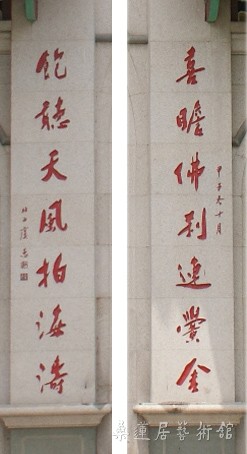 喜瞻佛刹連黌舍
甲子冬十月
飽聽天風拍海濤
桑蓮居藝術館